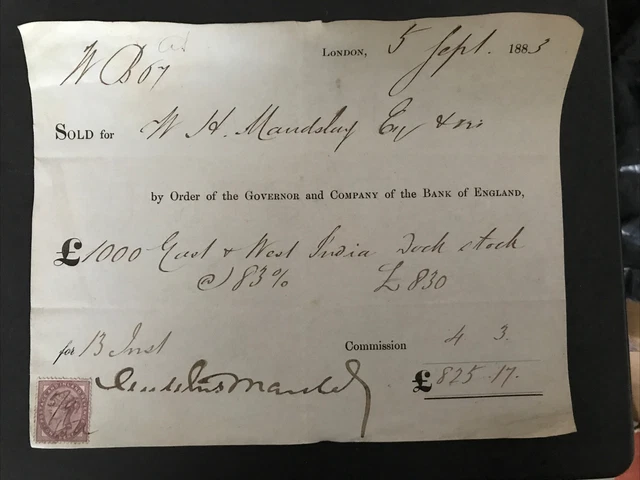 LONDON, 5 Sept. 1883
W B 67
SOLD for W H. Maudslay Esq &
by Order of the GOVERNOR and COMPANY of the BANK of ENGLAND,
£1000 East & West India Dock stock
@ 83% £830
for 13 Inst
Commission 4 3.
£825.17.